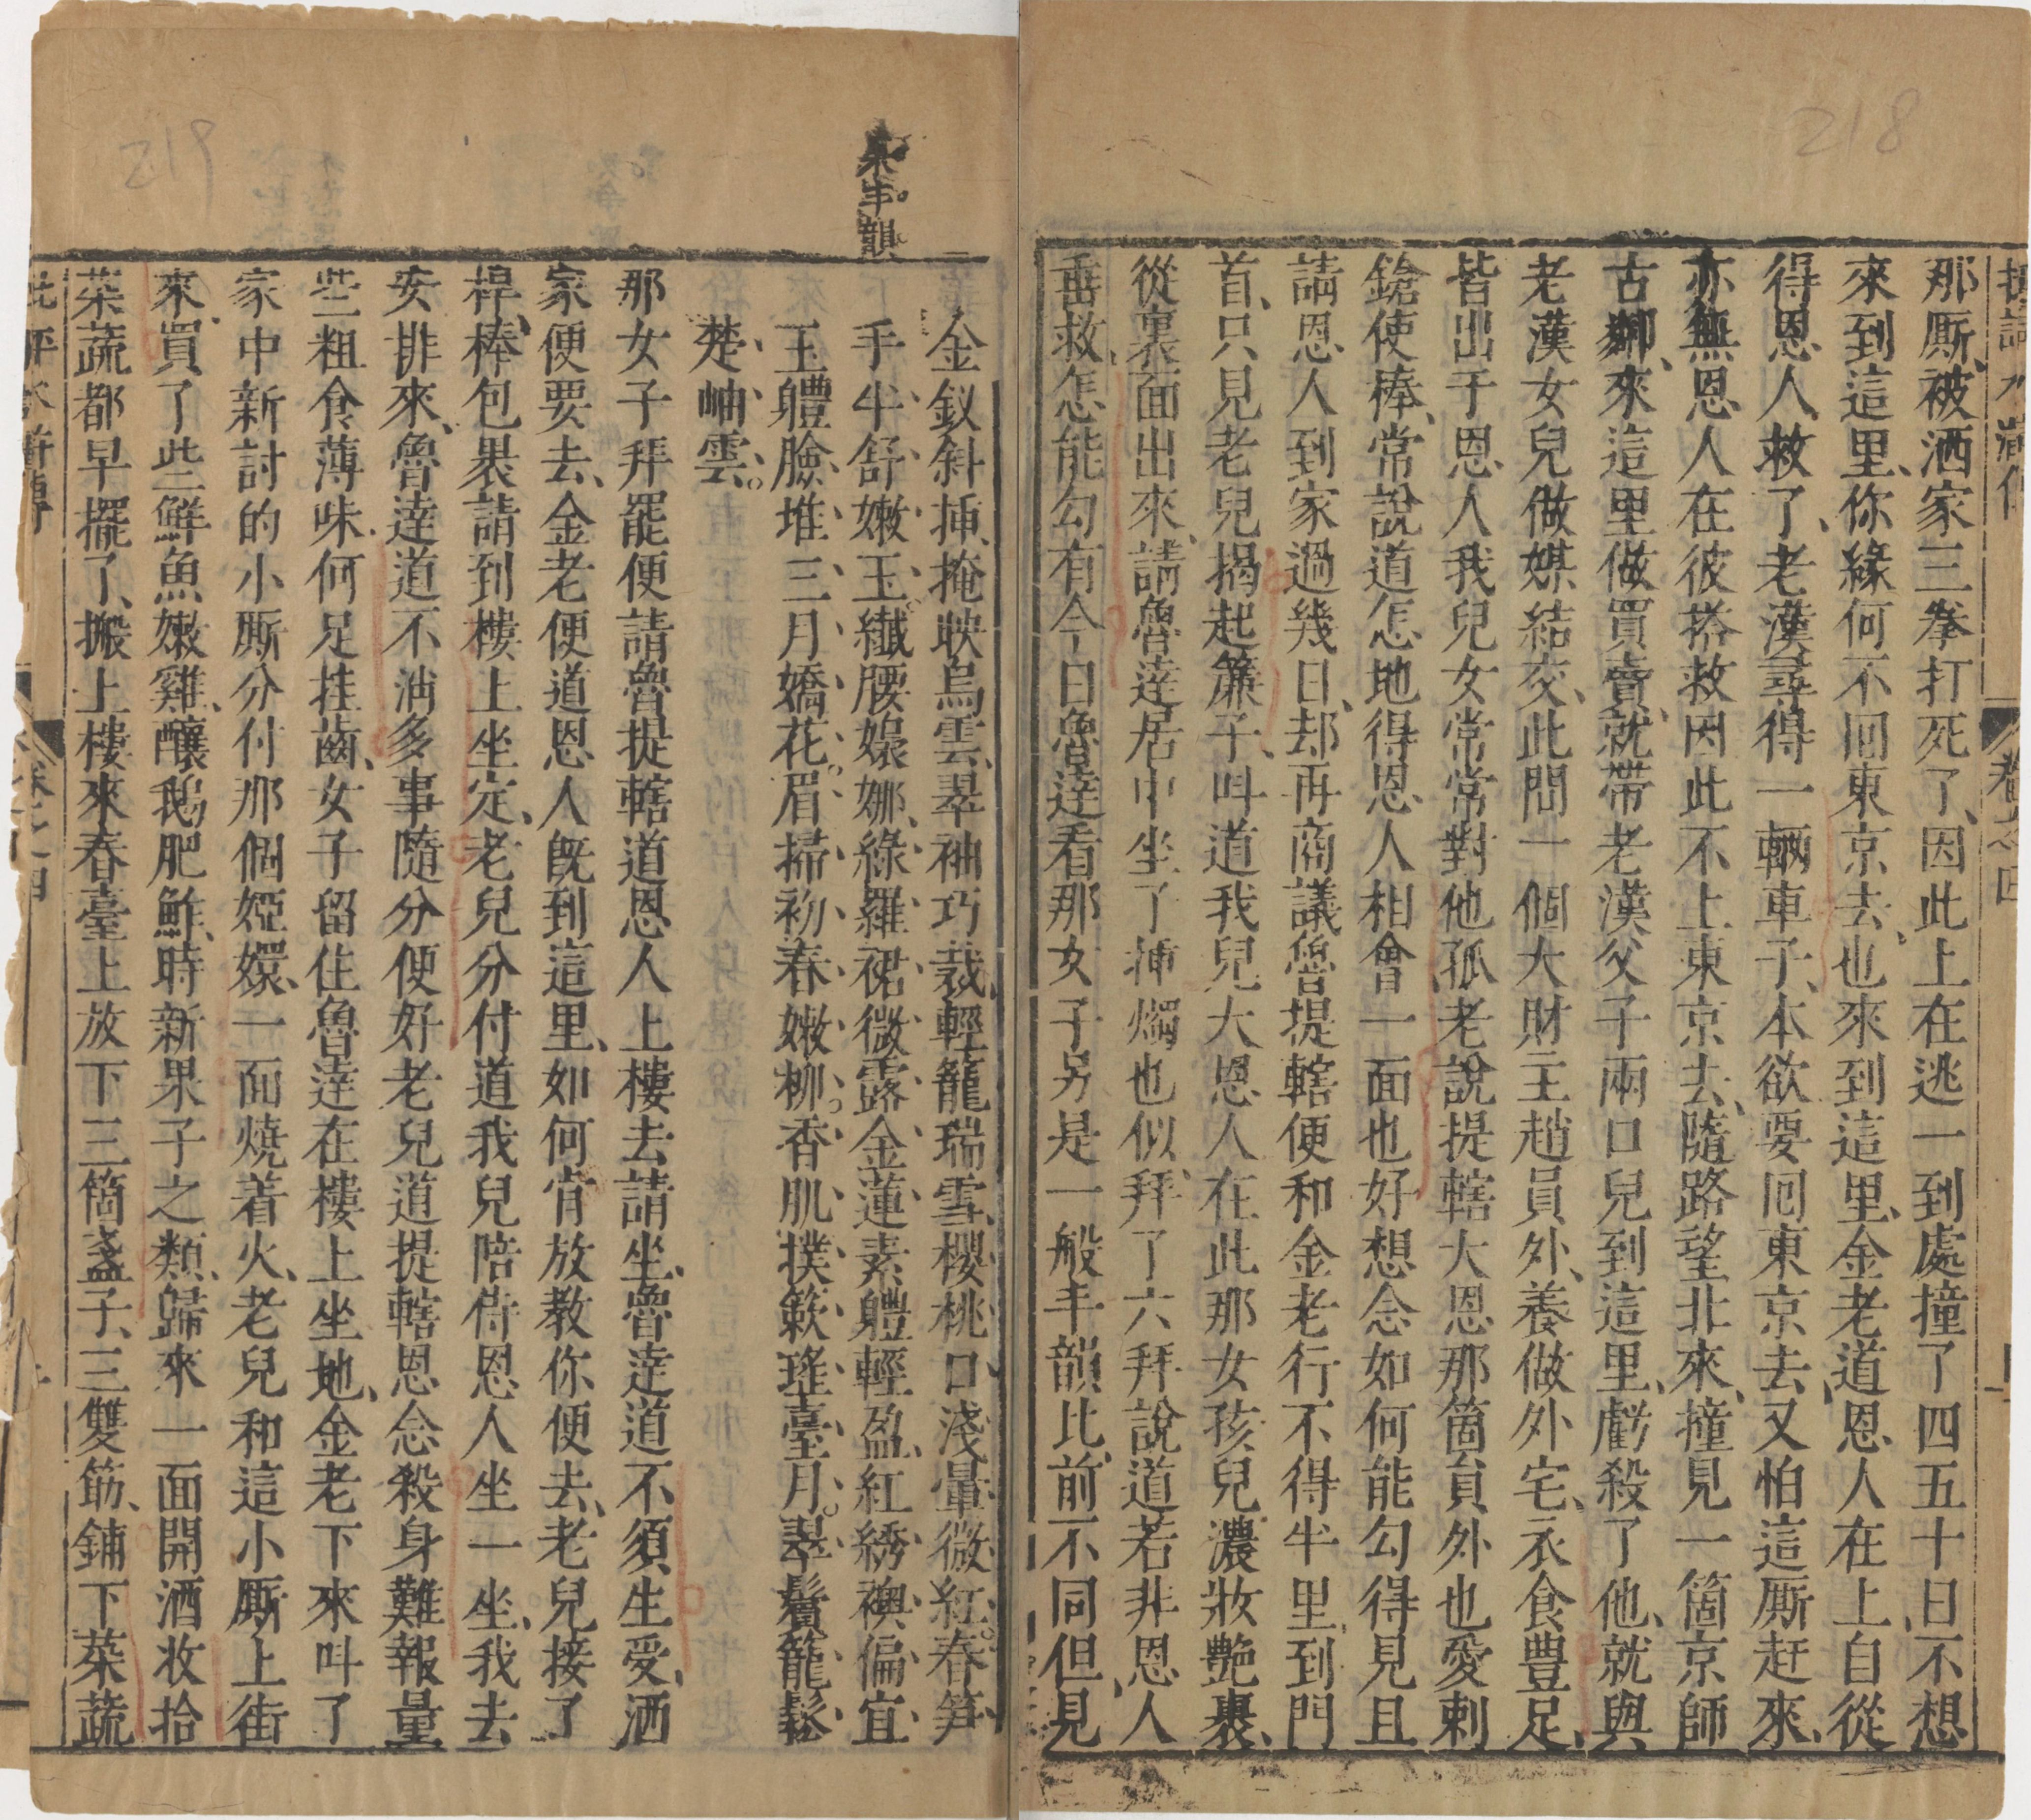 218
那厮、被洒家三拳打死了、因此上在逃一到處撞了四五十日、不想
來到這里、你緣何不回東京去、也來到這里、金老道恩人在上、自從
得恩人救了、老漢尋得一輛車子、本欲要囘東京去、又怕這厮赶來、
亦無恩人在彼搭救因此不上東京去、隨路望北來、撞見一箇京師
古鄰、來這里做買賣、就帶老漢父子兩口兒到這里、虧殺了他、就與
老漢女兒做媒結交、此間一個大財主趙員外、養做外宅、衣食豊足、
皆出于恩人我兒女常常對他孤老說提轄大恩那箇員外也愛刺
鎗使棒、常說道怎地得恩人相會一面也好想念如何能勾得見且
請恩人到家過幾日、却再商議魯提轄便和金老行不得半里、到門
首、只見老兒揭起簾子、叫道我兒大恩人在此那女孩兒濃妝艶裹、
從裏面出來、請魯達居中坐了揷燭也似、拜了六拜說道若非恩人
垂救、怎能勾有今日魯達看那女子另是一般丰韻比前不同但見
卷之四
219
丰韻
金釵斜揷、掩映烏雲、翠袖巧裁、輕籠瑞雪、櫻桃口淺暈微紅、春笋
手半舒嫩玉、纖腰嬝娜、綠羅裙微露金蓮、素軆輕盈、紅綉襖偏宜
玉軆、臉堆三月嬌花、眉掃初春嫩柳、香肌撲簌瑤臺月、翠鬢籠鬆
楚岫雲。
那女子拜罷便請魯提轄道恩人上樓去請坐、魯達道不須生受、洒
家便要去、金老便道恩人旣到這里、如何肯放教你便去、老兒接了
桿、棒包裹請到樓上坐定、老兒分付道我兒陪侍恩人坐一坐、我去
安排來、魯達道不消多事隨分便好老兒道提轄恩念殺身難報量
些粗食薄味何足挂齒、女子留住魯達在樓上坐地、金老下來叫了
家中新討的小厮分付那個婭嬛、一面燒着火、老兒和這小厮上街
來、買了些鮮魚嫩雞、釀鵝肥鮓、時新果子之類、歸來一面開酒妝拾
菜蔬都早擺了、搬上樓來春臺上放下三箇盞子、三雙筯、鋪下菜蔬
批評水滸傳
卷之四